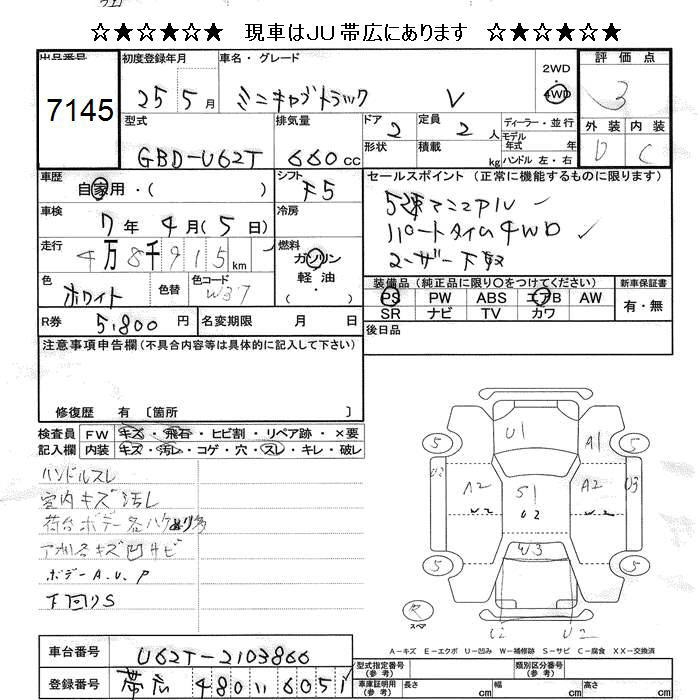 ☆★☆★☆★ 現車はJU帯広にあります ☆★☆★☆★
出品番号 初度登録年月 車名・グレード 2WD 評価点
7145 25 5月 ミニキャブトラック V 4WD 3
型式 排気量 ドア 2 定員 2人 ディーラー・並行 外装 内装
GBD-U62T 660cc 形状 積載 kg モデル年式 年 D C
ハンドル 左・右
車歴 自家用・( ) シフト F5 セールスポイント(正常に機能するものに限ります)
車検 7年4月(5日) 冷房 5速マニュアル
走行 4万8千915km 燃料 ガソリン パートタイム4WD
軽油 ( ) ユーザー下取
色 ホワイト 色替 色コード W37 装備品(純正品に限り○をつけてください) 新車保証書
PS PW ABS エアB AW 有・無
SR ナビ TV カワ
R券 5,800円 名変期限 月 日 後日品
注意事項申告欄(不具合内容等は具体的に記入して下さい)
修復歴 有〔箇所 〕
検査員 FW キズ・飛石・ヒビ割・リペア跡・×要
記入欄 内装 キズ・汚レ・コゲ・穴・スレ・キレ・破レ
ハンドルスレ
室内キズ汚レ
荷台ボデー各ハケぬり多
アオリ各キズ凹サビ
ボデーA.U.P
下回りS
U1 A1 5 5
U2 A2 S1 A2 U3
U2 U2 U2
W3 5 5
スペア U2 U2
A-キズ E-エクボ U-凹み W-補修跡 S-サビ C-腐食 XX-交換済
車台番号 U62T-2103866
登録番号 帯広 480 い 6051
型式指定番号(参考) 類別区分番号(参考)
車庫証明用(参考) 長さ cm 幅 cm 高さ cm